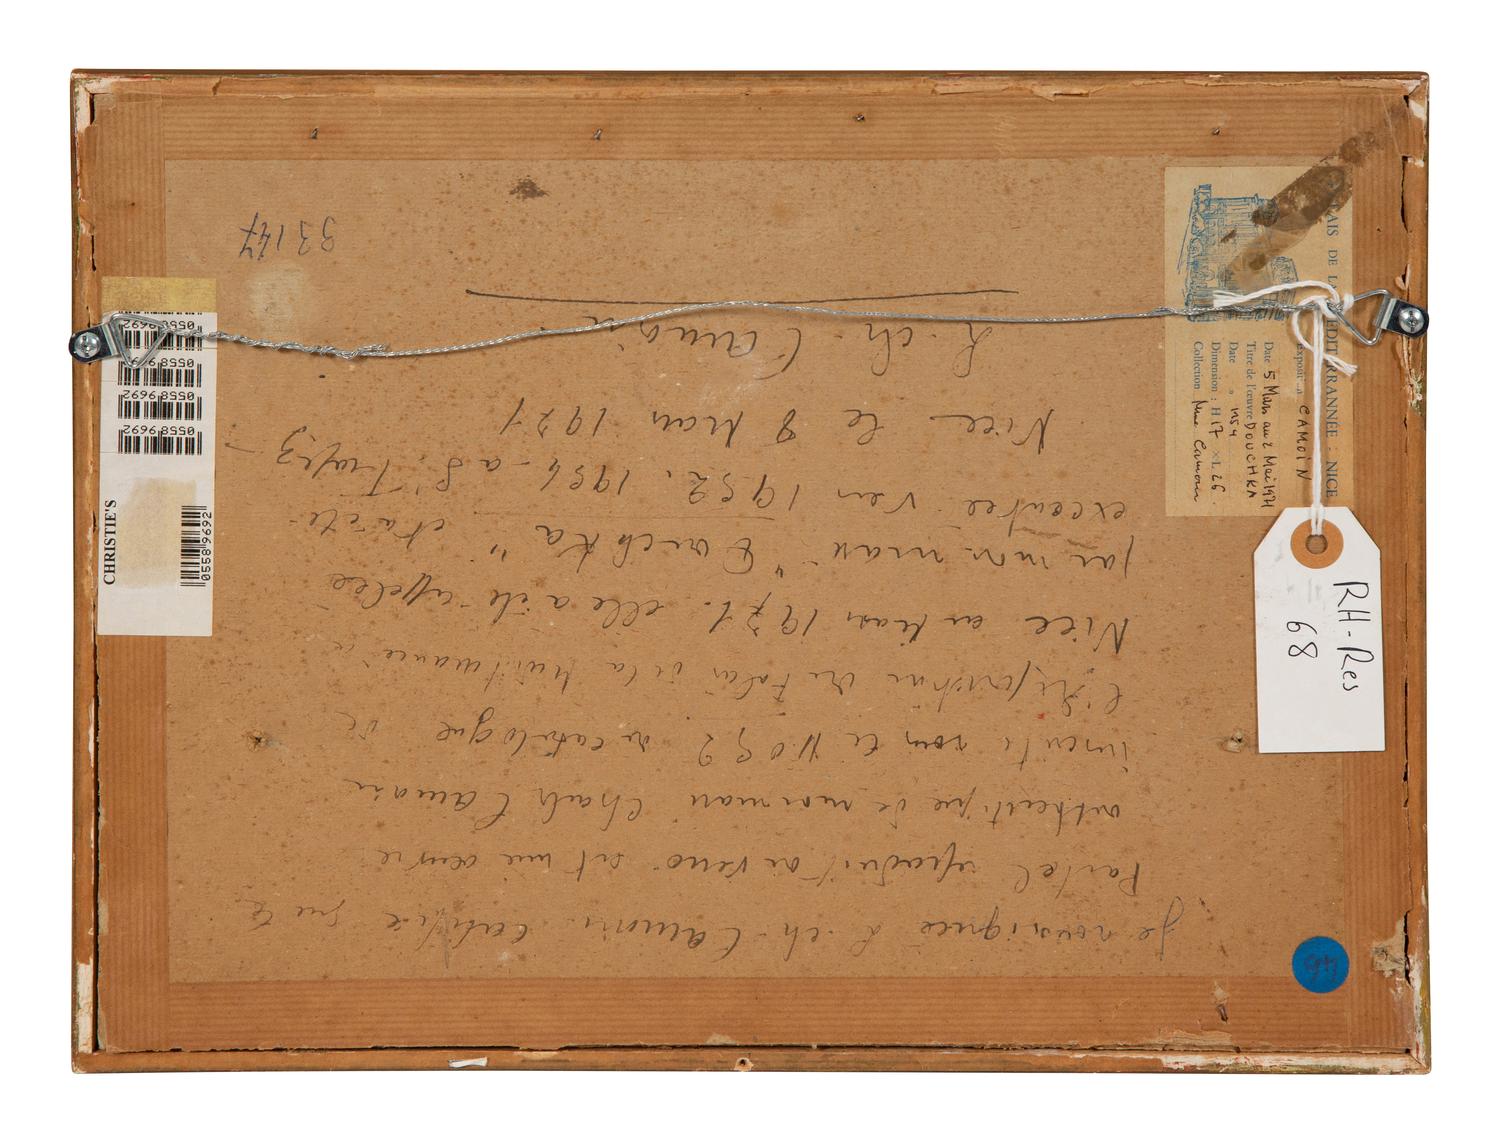 Je soussignée L. ch. Camoin certifie que le
Pastel reproduit au verso est une œuvre
authentique de mon mari Charles Camoin
inscrite sous le N° 52 du catalogue de
l'Exposition du Palais de la Méditerranée à
Nice en Mars 1971. elle a été appelée
par mon mari "Douchka" et a été
executée vers 1952. 1954 - a St Tropez
Nice le 8 Mars 1971
L. ch. Camoin
33147
PALAIS DE LA MEDITERRANNÉE - NICE
Exposition CAMOIN
Date 5 Mars au 2 Mai 1971
Titre de l'œuvre DOUCHKA
Date n54
Dimension : H 17 × L 26
Collection Mme Camoin
RH-Res
68
CHRISTIE'S
05589692
05589692
05589692
05589692
05589692